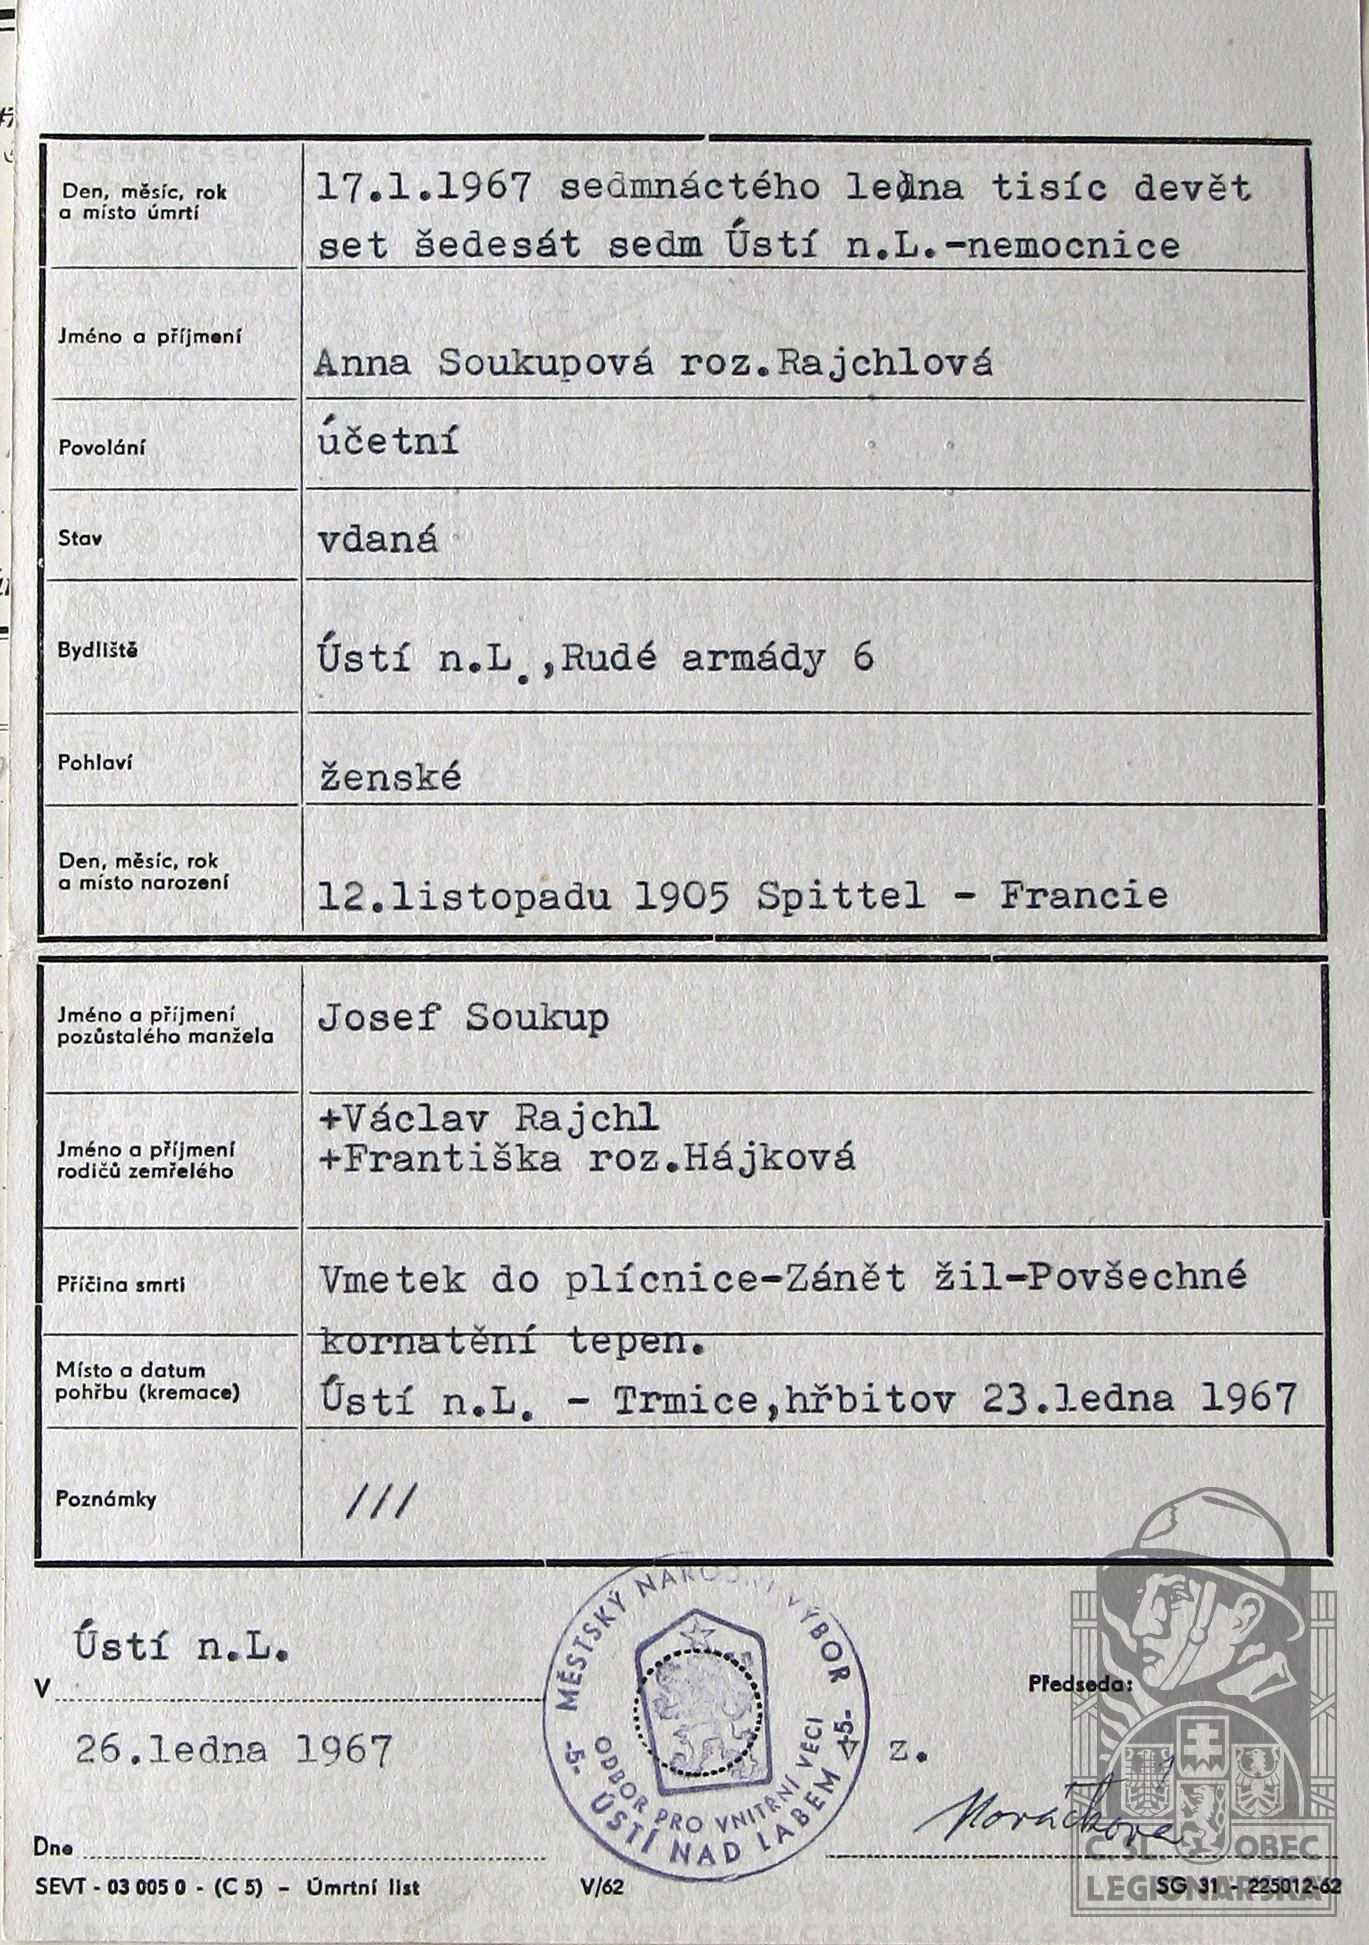 Den, měsíc, rok
a místo úmrtí
17.1.1967 sedmnáctého ledna tisíc devět
set šedesát sedm Ústí n.L.-nemocnice
Jméno a příjmení
Anna Soukupová roz.Rajchlová
Povolání
účetní
Stav
vdaná
Bydliště
Ústí n.L.,Rudé armády 6
Pohlaví
ženské
Den, měsíc, rok
a místo narození
12.listopadu 1905 Spittel - Francie
Jméno a příjmení
pozůstalého manžela
Josef Soukup
Jméno a příjmení
rodičů zemřelého
+Václav Rajchl
+Františka roz.Hájková
Příčina smrti
Vmetek do plícnice-Zánět žil-Povšechné
kornatění tepen.
Místo a datum
pohřbu (kremace)
Ústí n.L. - Trmice,hřbitov 23.ledna 1967
Poznámky
///
V Ústí n.L.
26.ledna 1967
Dne
MĚSTSKÝ NÁRODNÍ VÝBOR
-5- ÚSTÍ NAD LABEM -5-
ODBOR PRO VNITŘNÍ VĚCI
Předseda:
z.
Č.SL. OBEC
LEGIONÁŘSKÁ
SEVT - 03 005 0 - (C 5) - Úmrtní list
V/62
SG 31 - 225012-62